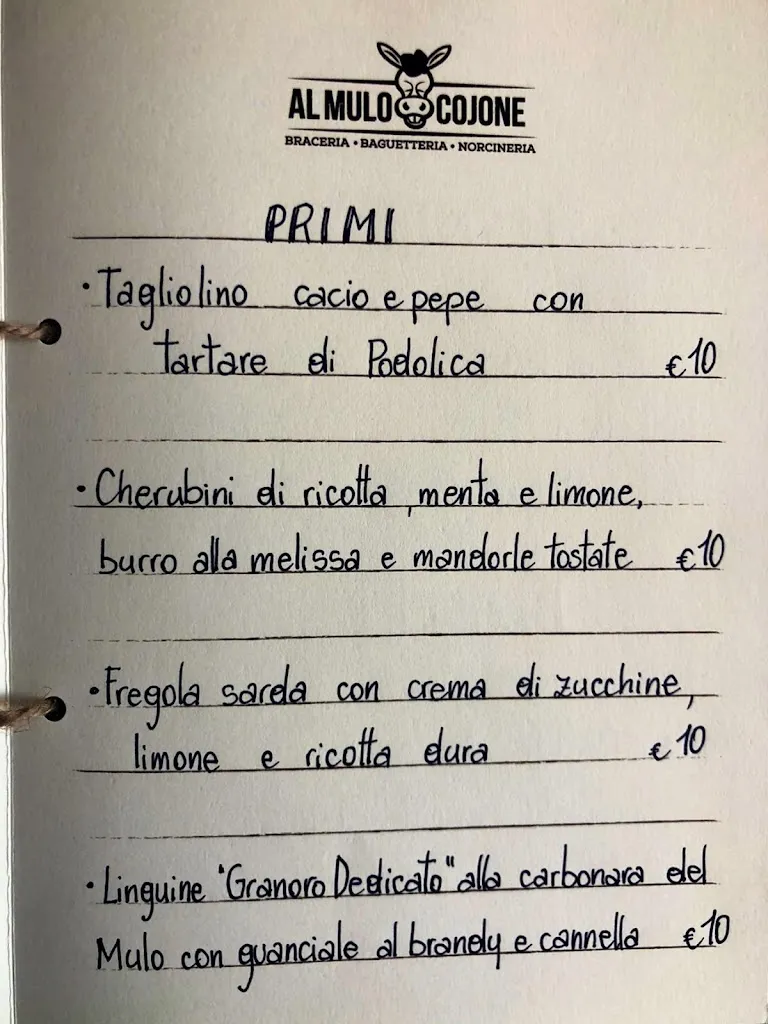 AL MULO COJONE
BRACERIA • BAGUETTERIA • NORCINERIA
PRIMI
• Tagliolino cacio e pepe con
tartare di Podolica €10
• Cherubini di ricotta, menta e limone,
burro alla melissa e mandorle tostate €10
• Fregola sarda con crema di zucchine,
limone e ricotta dura €10
• Linguine "Granoro Dedicato" alla carbonara del
Mulo con guanciale al brandy e cannella €10